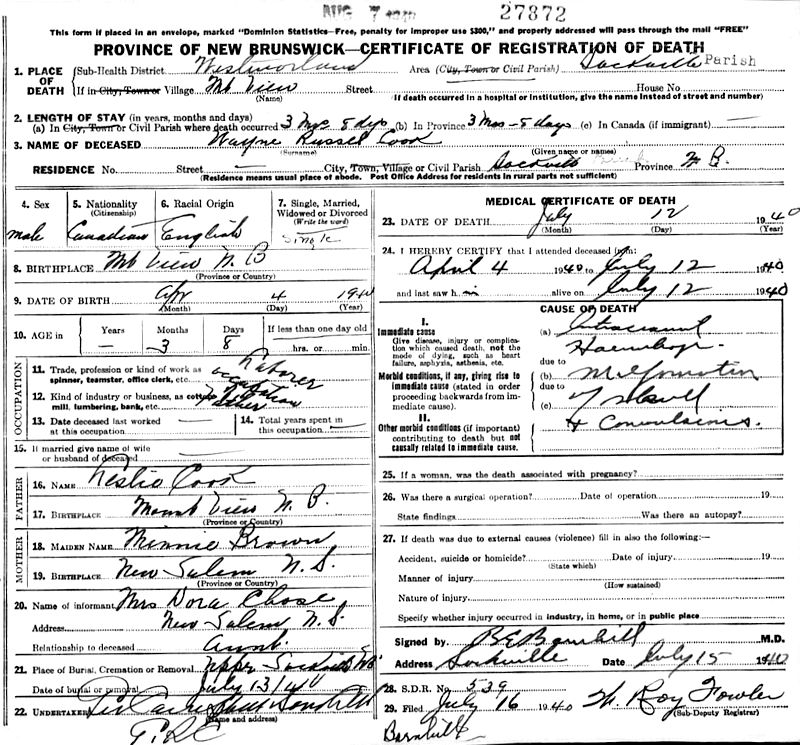 AUG 7 1940 27872
This form if placed in an envelope, marked "Dominion Statistics—Free, penalty for improper use $300," and properly addressed will pass through the mail "FREE"
PROVINCE OF NEW BRUNSWICK—CERTIFICATE OF REGISTRATION OF DEATH
1. PLACE OF DEATH {Sub-Health District Westmorland Area (City, Town or Civil Parish) Sackville Parish
If in City, Town or Village Mt View (Name) Street House No
If death occurred in a hospital or institution, give the name instead of street and number)
2. LENGTH OF STAY (in years, months and days)
(a) In City, Town or Civil Parish where death occurred 3 Mos 8 days (b) In Province 3 Mos - 8 days (c) In Canada (if immigrant) —
3. NAME OF DECEASED Wayne Russel Cook
(Surname) (Given name or names)
RESIDENCE No. Street — City, Town, Village or Civil Parish Sackville Province N. B.
(Residence means usual place of abode. Post Office Address for residents in rural parts not sufficient)
4. Sex male
5. Nationality (Citizenship) Canadian
6. Racial Origin English
7. Single, Married, Widowed or Divorced (Write the word) Single
8. BIRTHPLACE Mt View N. B
(Province or Country)
9. DATE OF BIRTH Apr 4 1940
(Month) (Day) (Year)
10. AGE in Years Months Days If less than one day old
— 3 8 hrs. or min.
OCCUPATION
11. Trade, profession or kind of work as spinner, teamster, office clerk, etc. Laborer
12. Kind of industry or business, as cotton mill, lumbering, bank, etc.
13. Date deceased last worked at this occupation —
14. Total years spent in this occupation —
15. If married give name of wife or husband of deceased —
FATHER
16. NAME Leslie Cook
17. BIRTHPLACE Mount View N. B.
(Province or Country)
MOTHER
18. MAIDEN NAME Minnie Brown
19. BIRTHPLACE New Salem N. S.
(Province or Country)
20. Name of informant Mrs Dora Chase
Address New Salem N. S.
Relationship to deceased aunt
21. Place of Burial, Cremation or Removal Upper Sackville N B
Date of burial or removal July 13/40
22. UNDERTAKER
(Name and address)
MEDICAL CERTIFICATE OF DEATH
23. DATE OF DEATH July 12 1940
(Month) (Day) (Year)
24. I HEREBY CERTIFY that I attended deceased from:
April 4 1940 to July 12 1940
and last saw h im alive on July 12 1940
CAUSE OF DEATH
I.
Immediate cause
Give disease, injury or complication which caused death, not the mode of dying, such as heart failure, asphyxia, asthenia, etc.
(a) Intracranial
Haemorrhage
Morbid conditions, if any, giving rise to immediate cause (stated in order proceeding backwards from immediate cause).
due to
(b)
due to
(c)
& Convulsions.
II.
Other morbid conditions (if important) contributing to death but not causally related to immediate cause.
25. If a woman, was the death associated with pregnancy?
26. Was there a surgical operation? Date of operation 19
State findings Was there an autopsy?
27. If death was due to external causes (violence) fill in also the following:—
Accident, suicide or homicide? Date of injury 19
(State which)
Manner of injury
(How sustained)
Nature of injury
Specify whether injury occurred in industry, in home, or in public place
Signed by B E Barnhill M.D.
Address Sackville Date July 15 1940
28. S.D.R. No. 539
29. Filed July 16 1940 W. Roy Fowler
(Sub-Deputy Registrar)
Barnhill